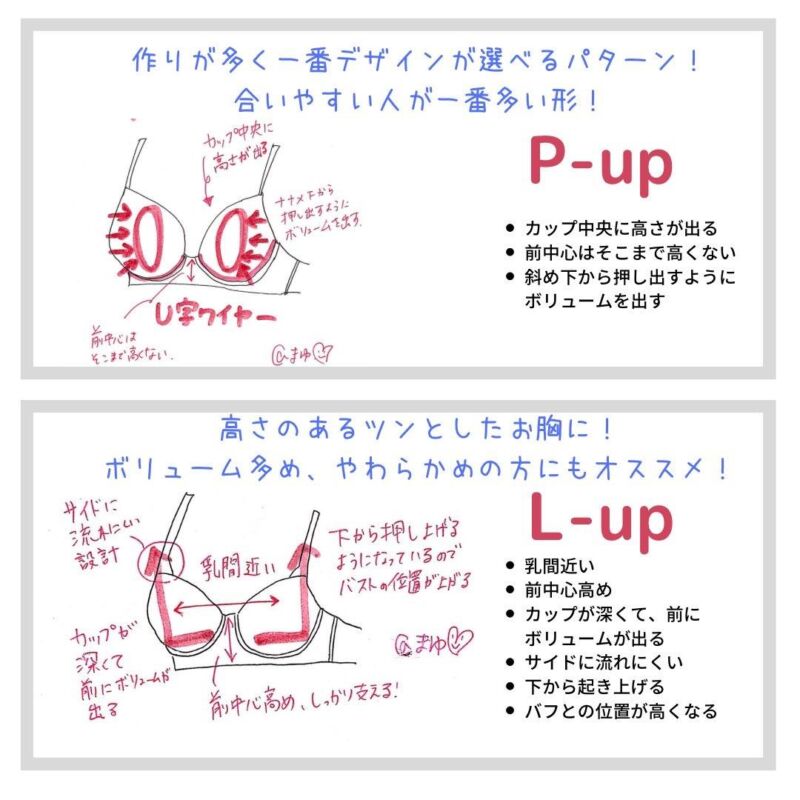 作りが多く一番デザインが選べるパターン！
合いやすい人が一番多い形！
カップ中央に
高さが出る
P-up
ナナメ下から
押し出すように
ボリュームを出す。
• カップ中央に高さが出る
• 前中心はそこまで高くない
• 斜め下から押し出すように
ボリュームを出す
U字ワイヤー
前中心は
そこまで高くない.
@まゆ
高さのあるツンとしたお胸に！
ボリューム多め、やわらかめの方にもオススメ！
サイドに
流れにくい
設計
乳間近い
下から押し上げる
ようになっているので
バストの位置が上がる
L-up
• 乳間近い
• 前中心高め
• カップが深くて、前に
ボリュームが出る
• サイドに流れにくい
• 下から起き上げる
• バフとの位置が高くなる
カップが
深くて
前にボリュームが
出る
@まゆ
前中心高め、しっかり支える！